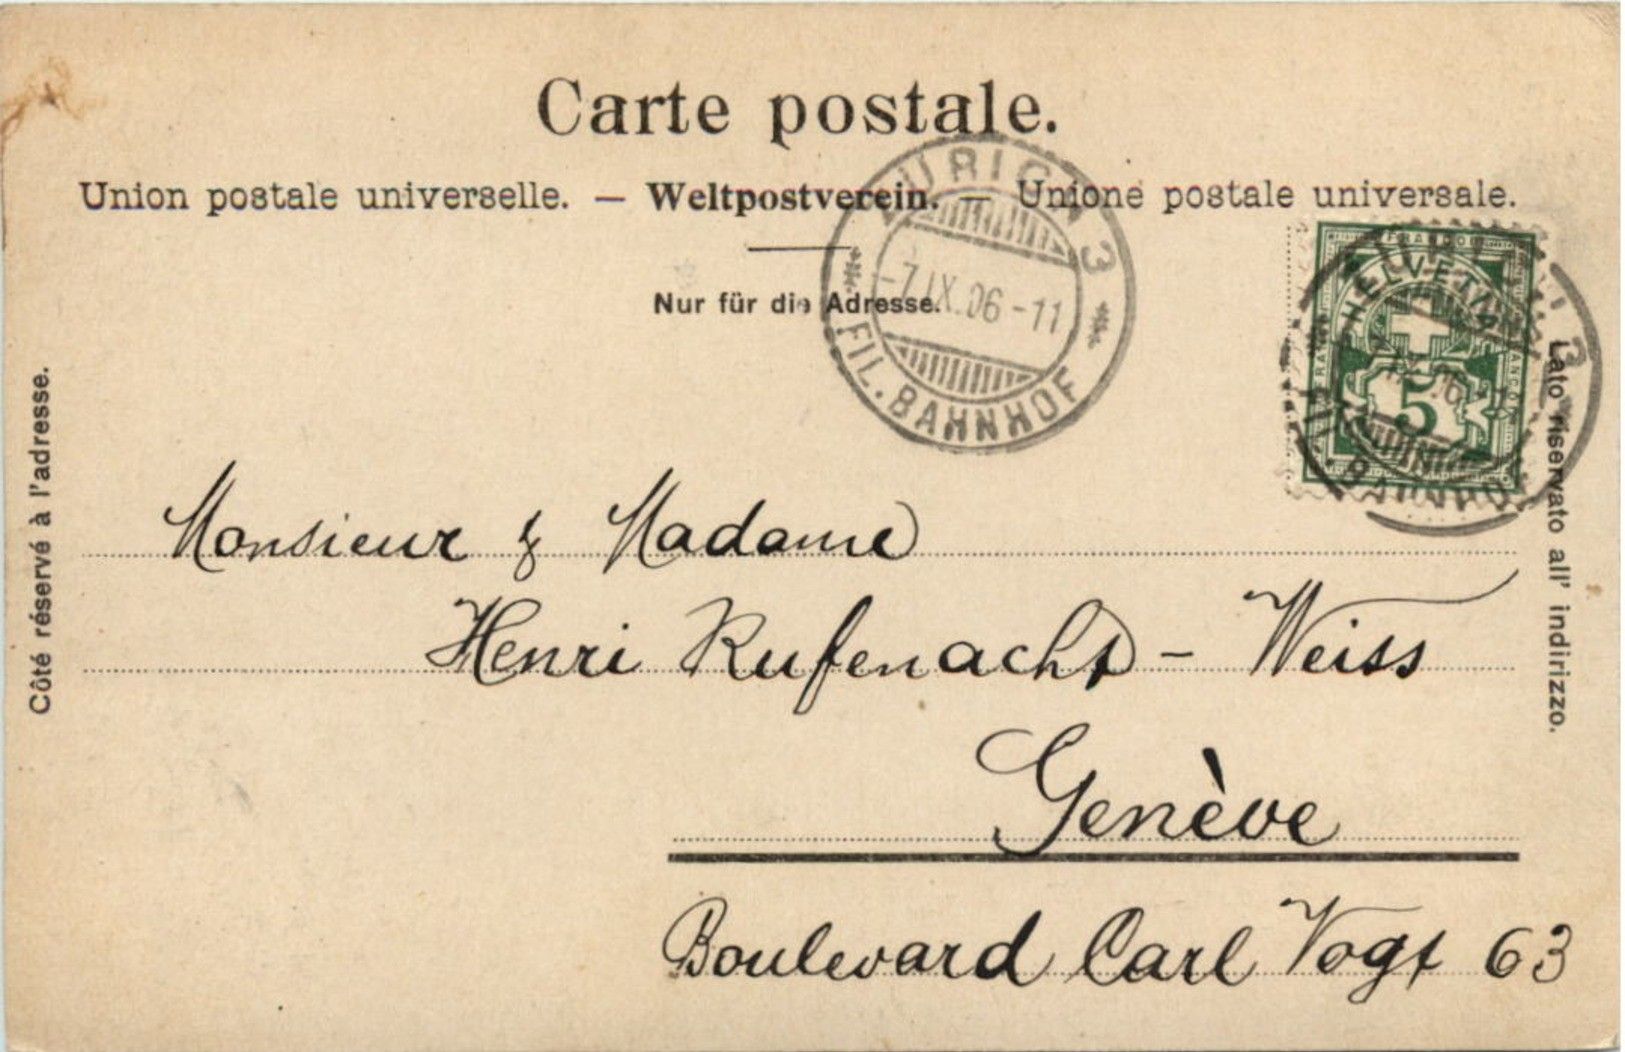 Carte postale.
Union postale universelle. — Weltpostverein. — Unione postale universale.
Nur für die Adresse.
ZÜRICH 3
-7.IX.06-11
FIL. BAHNHOF
FRANCO
HELVETIA
5
FIL. BAHNHOF
Côté réservé à l'adresse.
Lato riservato all' indirizzo.
Monsieur & Madame
Henri Rufenacht - Weiss
Genève
Boulevard Carl Vogt 63